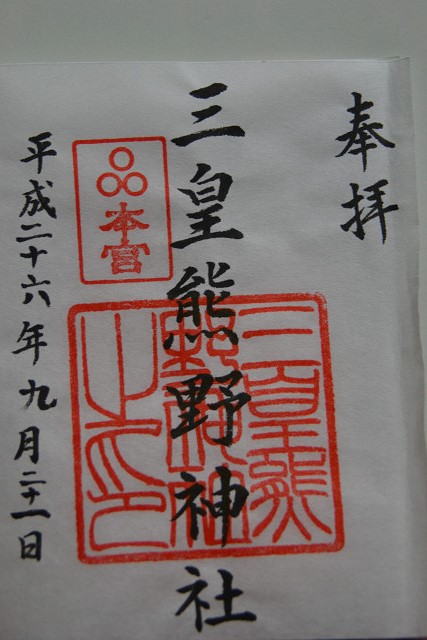 奉拝
三皇熊野神社
本宮
三皇熊野神社之印
平成二十六年九月二十一日